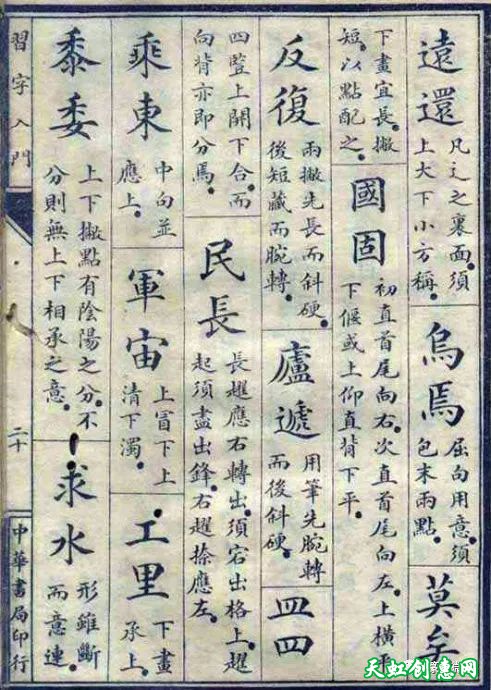 遠還
凡辶之裏面須
上大下小方稱。
烏焉
屈向用意須
包末兩點。
莫矣
下畫宜長。撇
短。以點配之。
國固
初直首尾向右。次直首尾向左。上橫平
下偃或上仰直背下平。
反復
兩撇先長而斜硬。
後短藏而腕轉。
廬遞
用筆先腕轉
而後斜硬。
皿四
四豎上開下合。而
向背亦即分焉。
民長
長趯應右轉出。須宕出格上。趯
起須盡出鋒。右趯捺應左。
乘東
中勾並
應上。
軍宙
上冒下上
清下濁。
工里
下畫
承上。
黍委
上下撇點有陰陽之分。不
分則無上下相承之意。
求水
形雖斷
而意連。
習字入門
二十
中華書局印行
天虹创意网